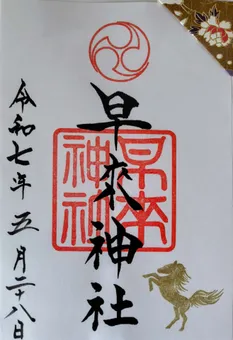 早来神社
早来神社
令和七年五月二十八日